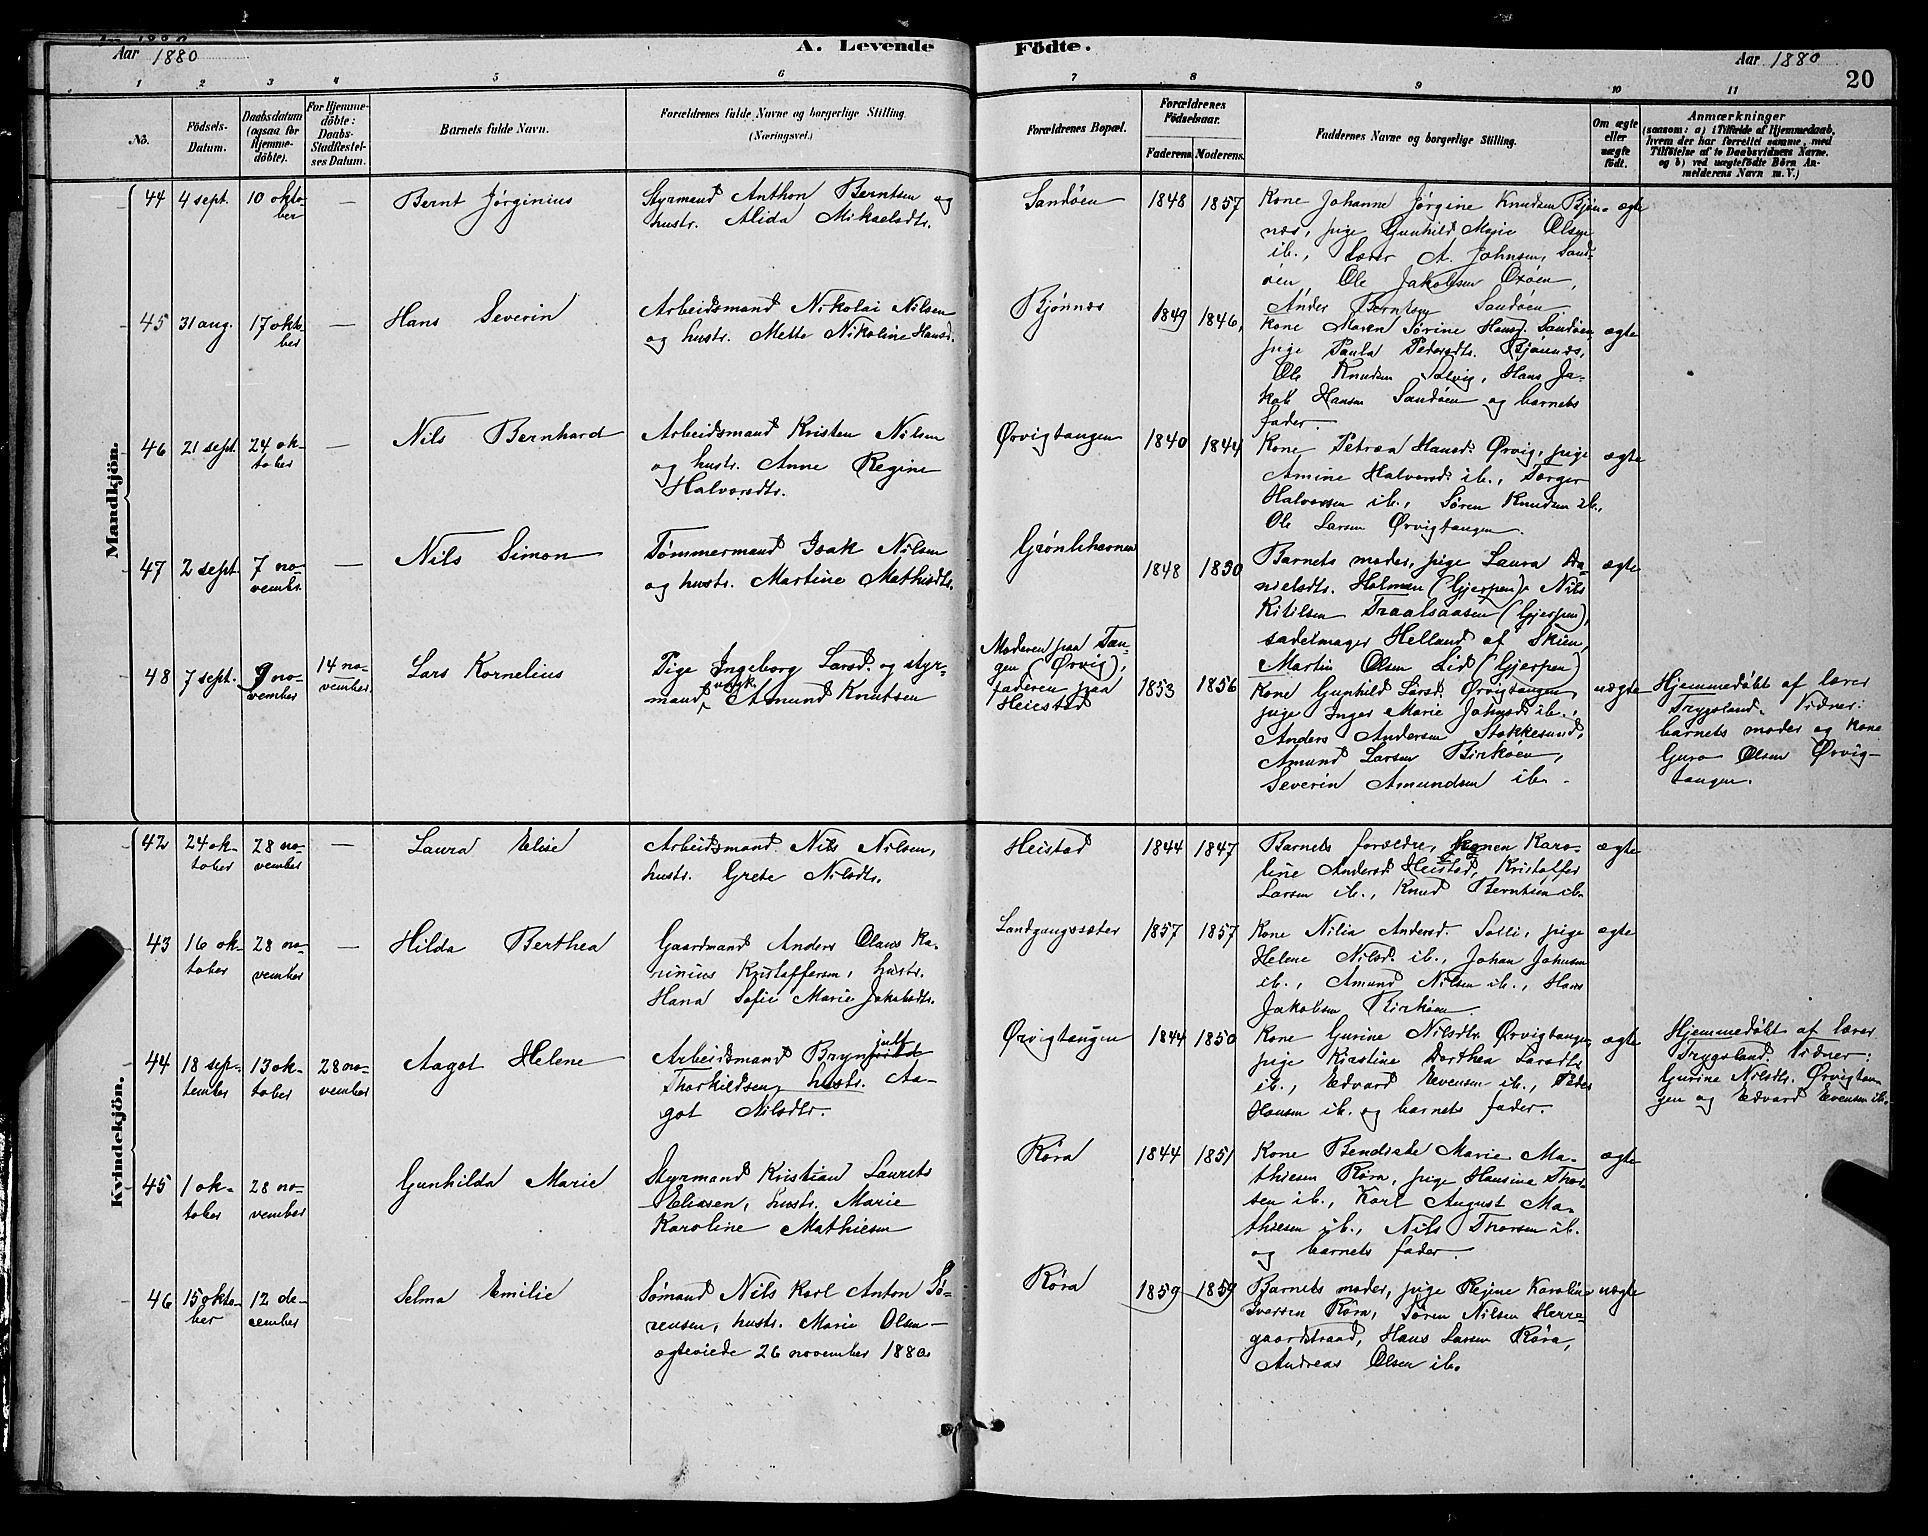 Aar 1880
A. Levende Födte.
Aar 1880
20
1 2 3 4 5 6 7 8 9 10 11
No.
Födsels-
Datum.
Daabsdatum
(ogsaa for
Hjemme-
döbte).
For Hjemme-
döbte:
Daabs-
Stadfæstel-
ses Datum.
Barnets fulde Navn.
Forældrenes fulde Navne og borgerlige Stilling.
(Næringsvei.)
Forældrenes Bopæl.
Forældrenes
Födselsaar.
Faderens. Moderens.
Faddernes Navne og borgerlige Stilling.
Om ægte
eller
uægte
födt.
Anmærkninger
(saasom: a) i Tilfælde af Hjemmedaab,
hvem der har forrettet samme, med
Tilföielse af to Daabsvidners Navne,
og b) ved uægtefödte Börn An-
melderens Navn m. V.)
Mandkjön.
44
4 sept.
10 okto-
ber
—
Bernt Jørginius
Styrmand Anthon Berntsen og
hustr. Alida Mikaelsdtr.
Sandøen
1848
1857
Kone Johanne Jørgine Knudsen Bjøn-
næs, pige Gunhild Marie Olsen
ib., Lærer A. Johnsen, Sand-
øen Ole Jakobsen Oxøen,
Anders Berntsen Sandøen
ægte
45
31 aug.
17 okto-
ber
—
Hans Severin
Arbeidsmand Nikolai Nilsen
og hustr. Mette Nikoline Hansd.
Bjønnæs
1849
1846
Kone Maren Sørine Hansd. Sandøen,
pige Paula Pedersdtr. Bjønnæs,
Ole Knudsen Solvig, Hans Ja-
kob Hansen Sandøen og barnets
fader.
ægte
46
21 sept.
24 ok-
tober
—
Nils Bernhard
Arbeidsmand Kristen Nilsen
og hustr. Anne Regine
Halvorsdtr.
Ørvigtangen
1840
1844
Kone Petrea Hansd. Ørvig, pige
Amine Halvorsd. ib., Torger
Halvorsen ib., Søren Knudsen ib.,
Ole Larsen Ørvigtangen
ægte
47
2 sept.
7 no-
vembr.
—
Nils Simon
Tømmermand Isak Nilsen
og hustr. Martine Mathisdtr.
Grønlihavnen
1848
1850
Barnets moder, pige Laura Da-
nielsdtr. Holmen (Gjerpen), Nils
Kittilsen Traalsaasen (Gjerpen),
sadelmager Helland af Skien,
Martin Olsen Lid (Gjerpen)
ægte
48
7 sept.
9 no-
vember
14 no-
vember
Lars Kornelius
Pige Ingeborg Larsd. og styr-
mand Amund Knutsen
Moderen paa Tan-
gen (Ørvig),
faderen paa
Heiestad
1853
1856
Kone Gunhild Larsd. Ørvigtangen,
pige Inger Marie Johnsd. ib.,
Anders Andersen Stokkesund,
Amund Larsen Birkøen,
Severin Amundsen ib.
uægte
Hjemmedøbt af lærer
Trygsland. Vidner:
barnets moder og kone
Guro Olsen Ørvig-
tangen.
Kvindekjön.
42
24 ok-
tober
28 no-
vember
—
Laura Elise
Arbeidsmand Nils Nilsen,
hustr. Grete Nilsdtr.
Heistad
1844
1847
Barnets forældre, konen Karo-
line Andersd. Heistad, Kristoffer
Larsen ib., Knud Berntsen ib.
ægte
43
16 ok-
tober
28 no-
vember
—
Hilda Berthea
Gaardmand Anders Olaus Ka-
ninius Kristoffersen, hustr.
Hana Sofie Marie Jakobsdtr.
Landgangssæter
1857
1857
Kone Nilia Andersd. Solli, pige
Helene Nilsd. ib., Johan Johnsen
ib., Amund Nilsen ib., Hans
Jakobsen Birkøen.
ægte
44
18 sep-
tember
13 ok-
tober
28 no-
vember
Aagot Helene
Arbeidsmand Bryn
Thorkildsen, hustr. Aa-
got Nilsdtr.
Ørvigtangen
1844
1850
Kone Gurine Nilsdtr. Ørvigtangen,
pige Kirstine Dorthea Larsdtr.
ib., Edvard Evensen ib., Peder
Hansen ib. og barnets fader.
ægte
Hjemmedøbt af lærer
Trygsland. Vidner:
Gurine Nilsdtr. Ørvigtan-
gen og Edvard Evensen ib.
45
1 ok-
tober
28 no-
vember
Gunhilda Marie
Styrmand Kristian Laurits
Eliasen, hustr. Marie
Karoline Mathiesen
Røra
1844
1851
Kone Bendicte Marie Ma-
thiesen Røra, pige Hansine Thor-
sen ib., Karl August Ma-
thiesen ib., Nils Thorsen ib.
og barnets fader.
ægte
46
15 okto-
ber
12 de-
cember
Selma Emilie
Sømand Nils Karl Anton Sø-
rensen, hustr. Marie Olsen —
ægteviede 26 november 1880.
Røra
1859
1859
Barnets moder, pige Regine Karoline
Iversen Røra, Søren Nilsen Herre-
gaardstraad, Hans Larsen Røra,
Andreas Olsen ib.
uægte